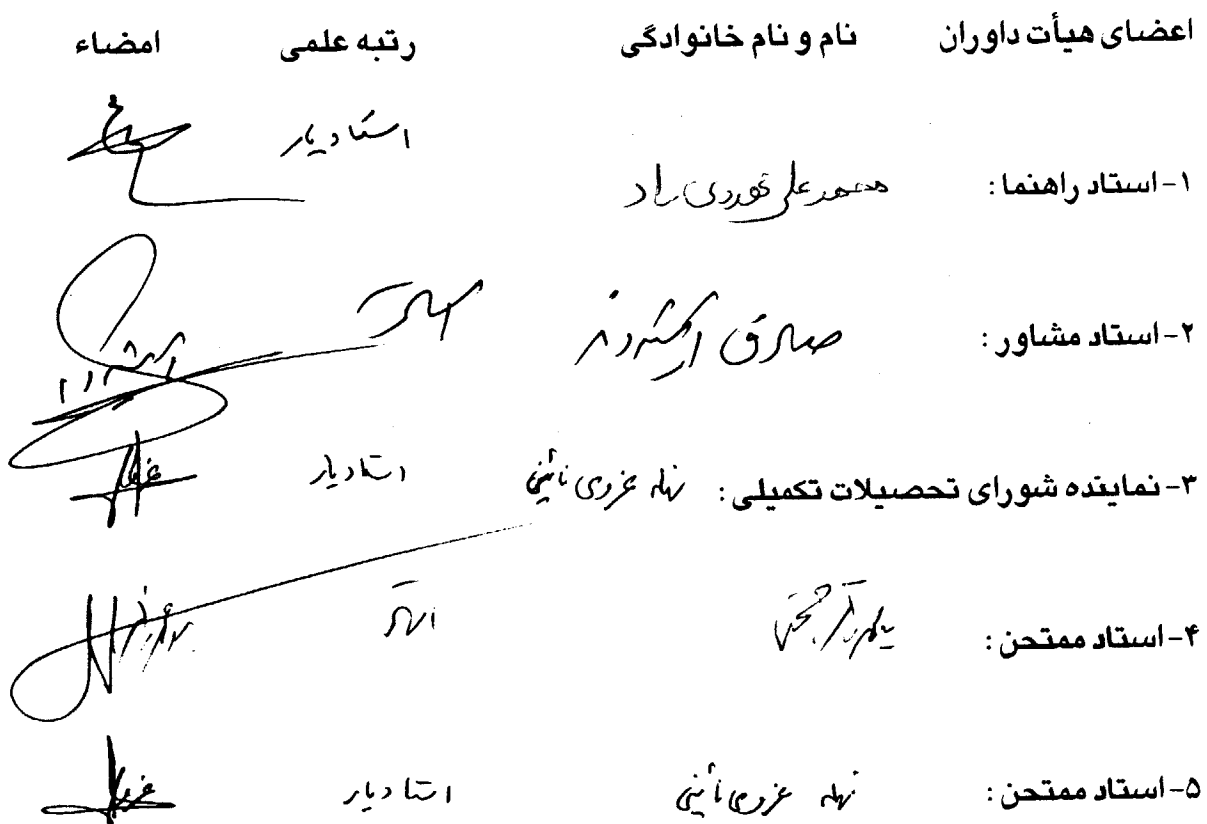 اعضای هیأت داوران نام و نام خانوادگی رتبه علمی امضاء
۱- استاد راهنما : محمد علی راد استادیار
۲- استاد مشاور : صادق آئینه‌وند استاد
۳- نماینده شورای تحصیلات تکمیلی : نهله غروی نائینی استادیار
۴- استاد ممتحن :
۵- استاد ممتحن : نهله غروی نائینی استادیار